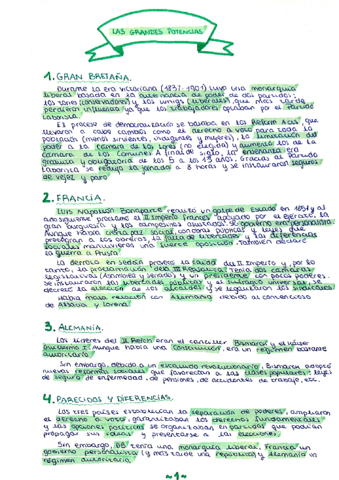 LAS GRANDES POTENCIAS
1. GRAN BRETAÑA.
Durante la era victoriana (1837-1901) hubo una monarquía
liberal basada en la alternancia de poder de dos partidos:
los tories (conservadores) y los whigs (liberales), que más tarde
perdieron influencia ya que los trabajadores optaban por el Partido
Laborista.
El proceso de democratización se basaba en los Reform Acts, que
llevaron a cabo cambios como el derecho a voto para toda la
población (menos sirvientes, indigentes y mujeres), la limitación del
poder a la Cámara de los Lores (no elegida) y aumento de la
cámara de los Comunes. A final de siglo, la enseñanza era
gratuita y obligatoria de los 5 a los 13 años. Gracias al Partido
Laborista se redujo la jornada a 8 horas y se instauraron seguros
de vejez y paro.
2. FRANCIA.
Luis Napoleón Bonaparte realizó un golpe de Estado en 1851 y al
año siguiente proclamó el II Imperio Francés apoyado por el ejército, la
gran burguesía y los campesinos
Aunque había cierta paz social, con obras públicas y leyes que
protegían a los obreros, la falta de libertades y las diferencias
sociales mantuvieron una fuerte oposición. También declaró
la guerra a Prusia.
La derrota en Sedán provocó la caída del II Imperio y, por lo
tanto, la proclamación de la III República. Tenía dos cámaras
legislativas (Asamblea y Senado) y un presidente con pocos poderes.
Se instauraron las libertades públicas y el sufragio universal, se
decretó la elección de los alcaldes y se legalizaron los sindicatos.
Había mala relación con Alemania debido al contencioso
de Alsacia y Lorena.
3. ALEMANIA.
Los líderes del II Reich eran el canciller Bismarck y el káiser
Guillermo I. Aunque había una constitución, era un régimen bastante
autoritario.
Sin embargo, debido a un escaso revolucionario, Bismarck adoptó
nuevas reformas sociales que favorecían a las clases populares: leyes
de seguro de enfermedad, de pensiones, de accidentes de trabajo, etc.
4. PARECIDOS Y DIFERENCIAS.
Los tres países establecían la separación de poderes, ampliaron
el derecho a voto, garantizaban los derechos fundamentales
y las opciones políticas se organizaban en partidos que podían
propagar sus ideas y presentarse a las elecciones.
Sin embargo, GB tenía una monarquía liberal, Francia un
gobierno personalista (y más tarde una república) y Alemania un
régimen autoritario.
~1~